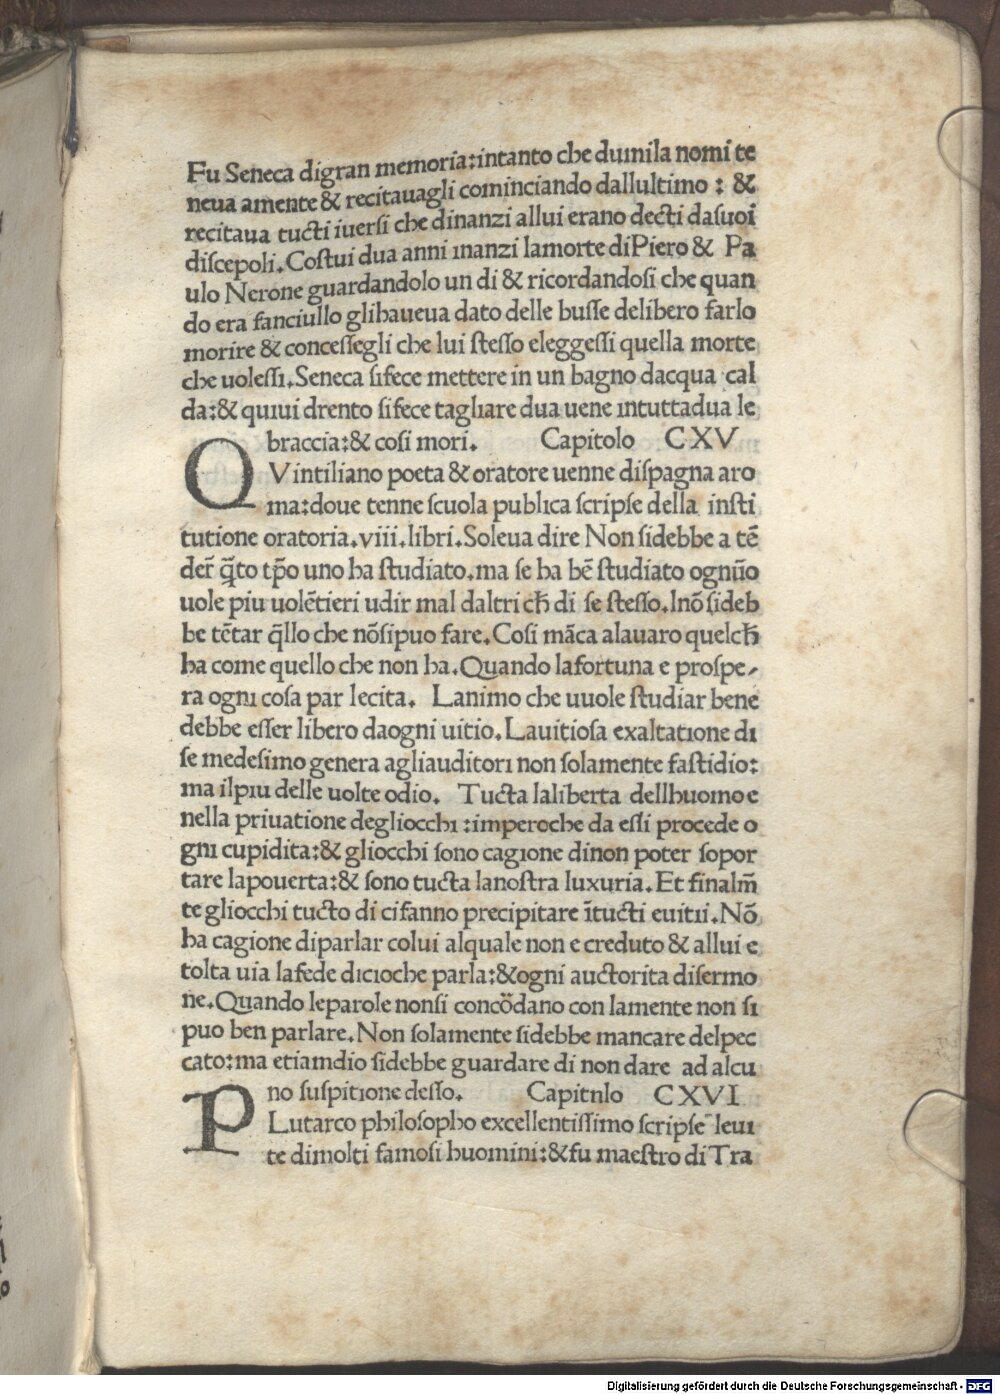 Fu Seneca digran memoria:intanto che dumila nomi te
neua amente & recitauagli cominciando dallultimo : &
recitaua tucti iuersi che dinanzi allui erano decti dasuoi
discepoli.Costui dua anni inanzi lamorte diPiero & Pa
ulo Nerone guardandolo un di & ricordandosi che quan
do era fanciullo glihaueua dato delle busse delibero farlo
morire & concessegli che lui stesso eleggessi quella morte
che uolessi.Seneca sifece mettere in un bagno dacqua cal
da:& quiui drento sifece tagliare dua uene intuttadua le
braccia:& cosi mori. Capitolo CXV
QVintiliano poeta & oratore uenne dispagna aro
ma:doue tenne scuola publica scripse della insti
tutione oratoria.viii.libri.Soleua dire Non sidebbe a tẽ
der̃ q̃to tp̃o uno ha studiato.ma se ha bẽ studiato ognũo
uole piu uolẽtieri udir mal daltri ch̃ di se stesso.Inõ sideb
be tẽtar q̃llo che nõsipuo fare.Cosi mãca alauaro quelch̃
ha come quello che non ha.Quando lafortuna e prospe-
ra ogni cosa par lecita. Lanimo che uuole studiar bene
debbe esser libero daogni uitio.Lauitiosa exaltatione di
se medesimo genera agliauditori non solamente fastidio:
ma ilpiu delle uolte odio. Tucta laliberta dellhuomo e
nella priuatione degliocchi :imperoche da essi procede o
gni cupidita:& gliocchi sono cagione dinon poter sopor
tare lapouerta:& sono tucta lanostra luxuria.Et finalm̃
te gliocchi tucto di cifanno precipitare ĩtucti euitii.Nõ
ha cagione diparlar colui alquale non e creduto & allui e
tolta uia lafede dicioche parla:&ogni auctorita disermo
ne.Quando leparole nonsi concõdano con lamente non si
puo ben parlare.Non solamente sidebbe mancare delpec
cato:ma etiamdio sidebbe guardare di non dare ad alcu
no suspitione desso. Capitnlo CXVI
PLutarco philosopho excellentissimo scripse leui
te dimolti famosi huomini:&fu maestro di Tra
Digitalisierung gefördert durch die Deutsche Forschungsgemeinschaft - DFG